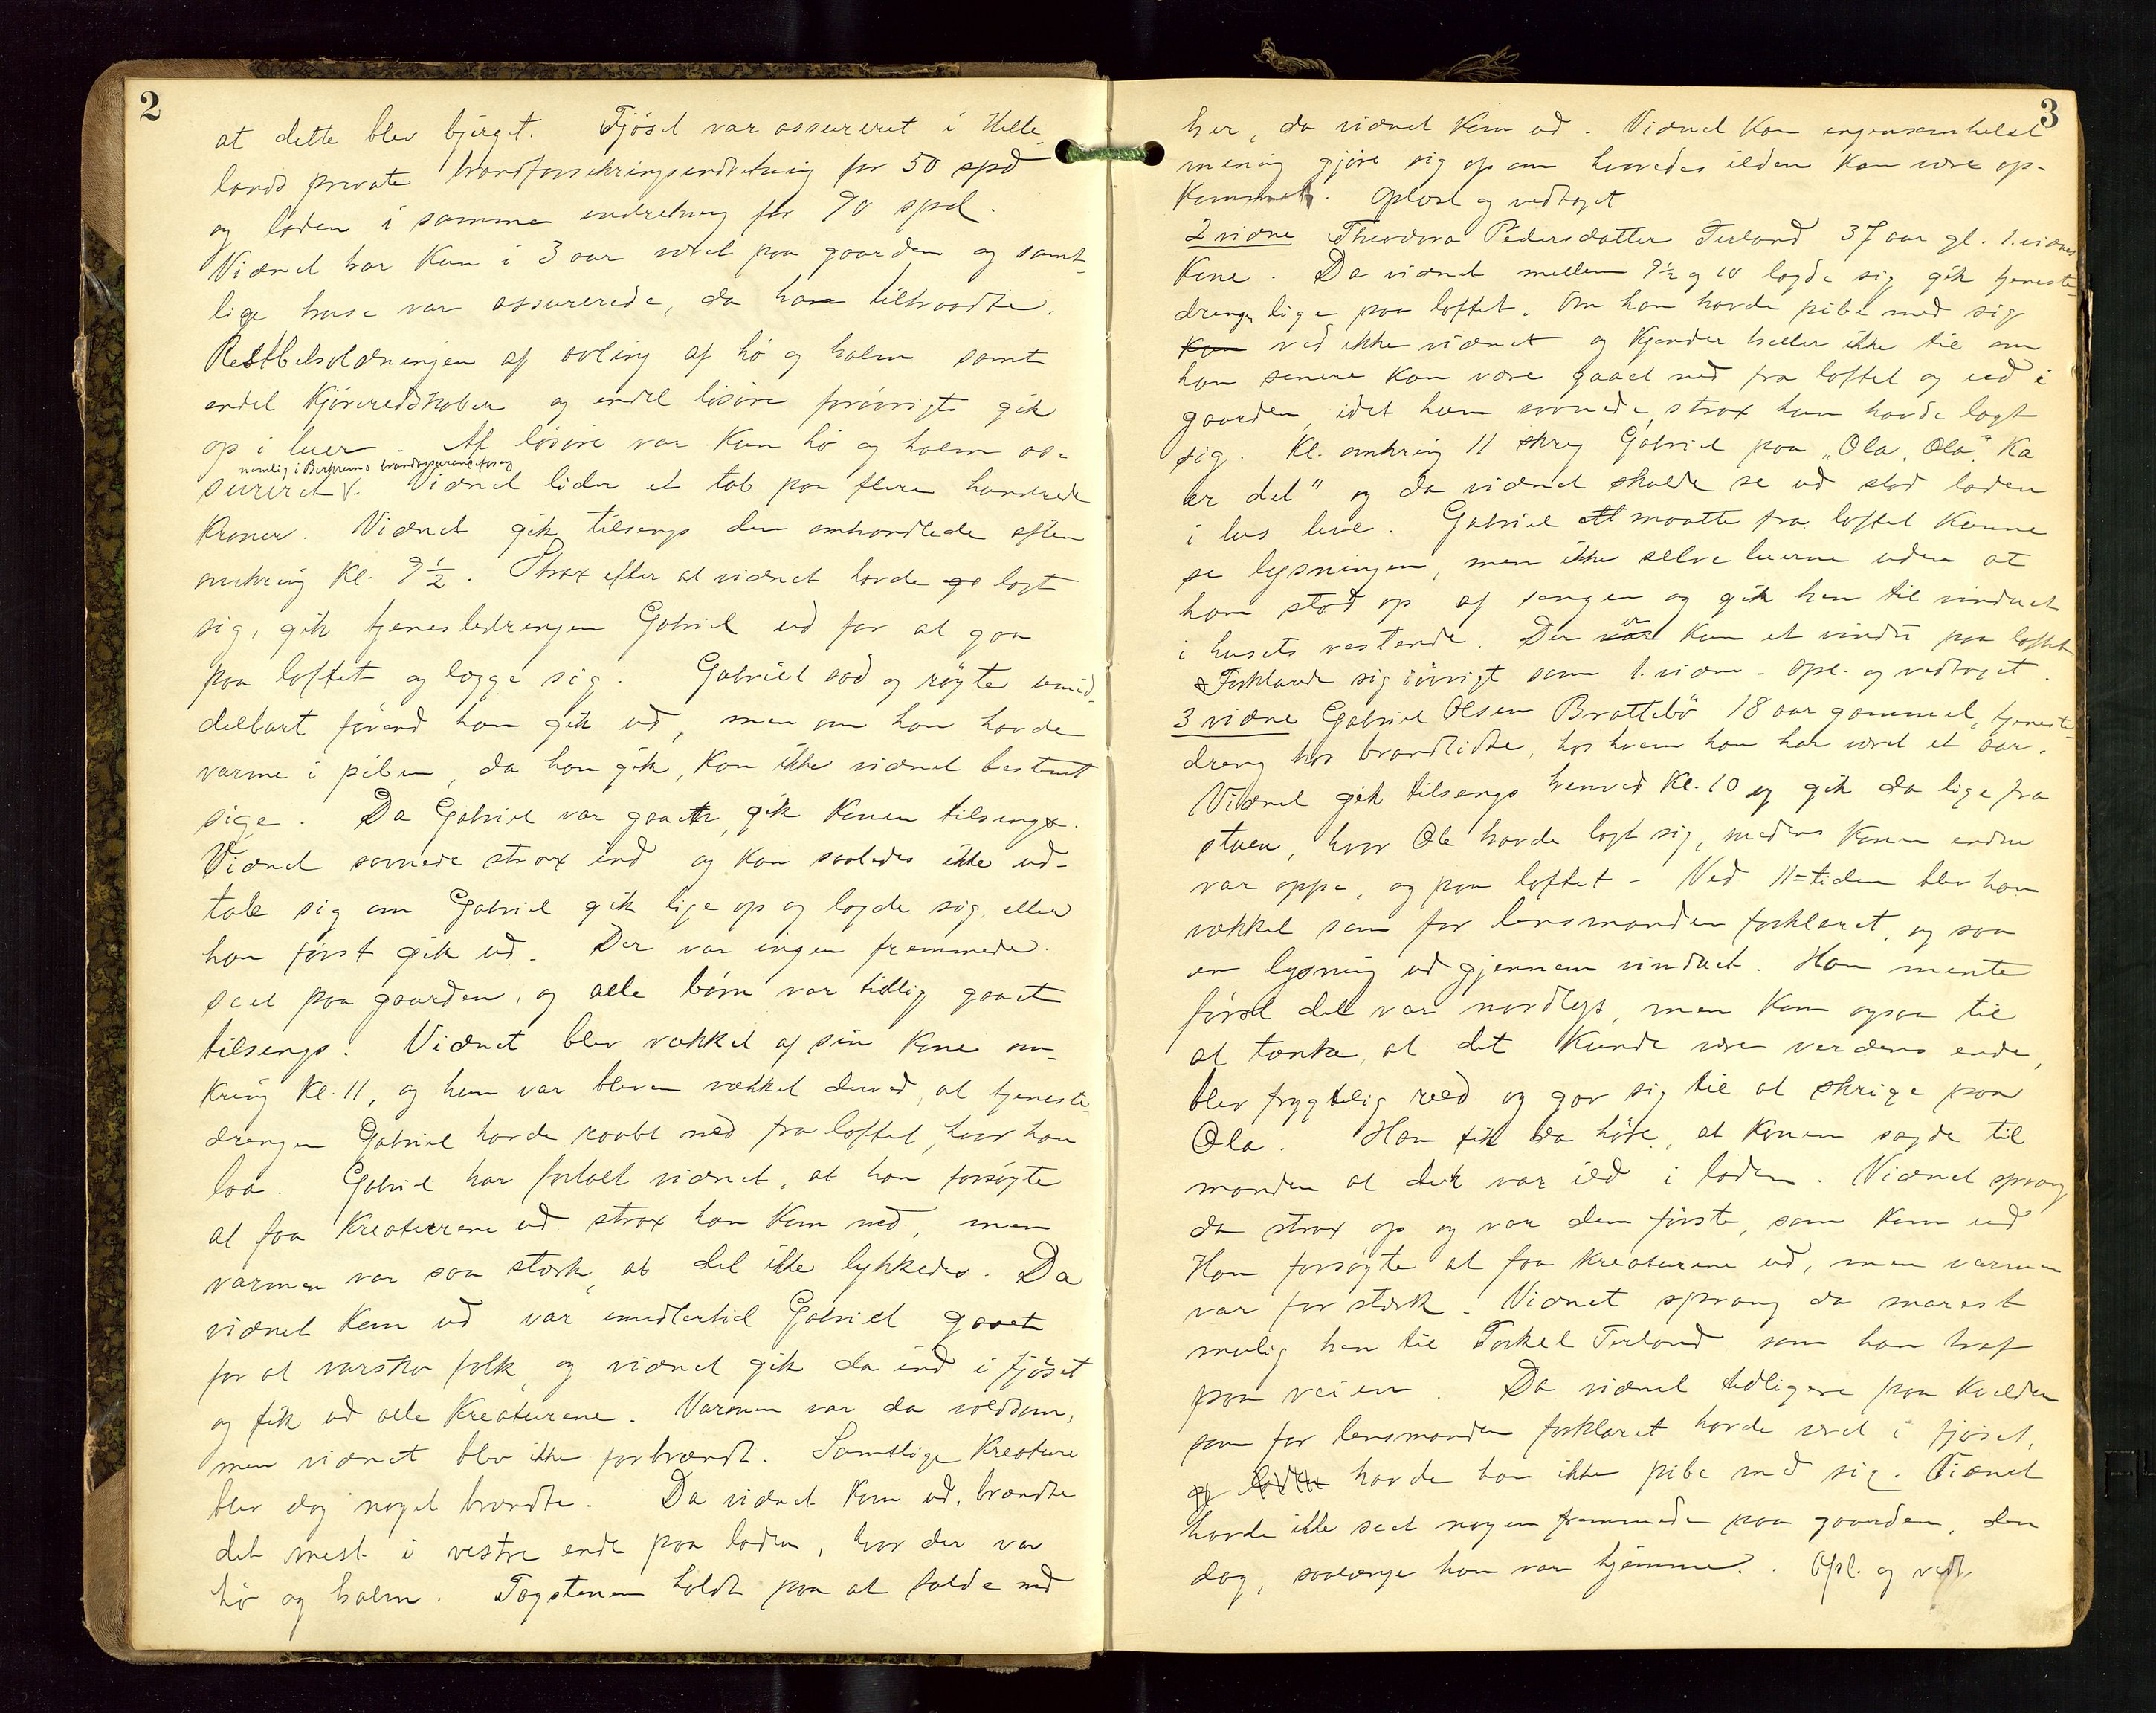 2
at dette blev bjerget. Fjöset var assureret i Helle-
lands private brandforsikringsindretning for 50 spd
og laden i samme indretning for 90 spd.
Vidnet har kun i 3 aar været paa gaarden og samt-
lige huse var assurerede, da han tiltraadte.
Restbeholdningen af avling af hö og halm samt
endel kjöreredskaber og endel lösöre forövrigt gik
op i luer. Af lösöre var kun hö og halm as-
namlig i brandassuranceforening
sureret. Vidnet lider et tab paa flere hundrede
kroner. Vidnet gik tilsengs den omhandlede aften
omkring Kl. 9½. Strax efter at vidnet havde lagt
sig, gik tjenestedrengen Gabriel ud for at gaa
paa loftet og lægge sig. Gabriel sad og rögte umid-
delbart förend han gik ud, men om han havde
varme i piben, da han gik, kan ikke vidnet bestemt
sige. Da Gabriel var gaaet, gik konen tilsengs.
Vidnet sovnede strax ind og kan saaledes ikke ud-
tale sig om Gabriel gik lige op og lagde sig, eller
han först gik ud. Der var ingen fremmede
seet paa gaarden, og alle börn var tidlig gaaet
tilsengs. Vidnet blev vækket af sin kone om-
kring Kl. 11, og hun var bleven vækket derved, at tjeneste-
drengen Gabriel havde raabt ned fra loftet, hvor han
laa. Gabriel har fortalt vidnet, at han forsögte
at faa kreaturene ud strax han kom ned, men
varmen var saa stærk, at det ikke lykkedes. Da
vidnet kom ud var imidlertid Gabriel gaaet
for at varsko folk, og vidnet gik da ind i fjöset
og fik ud alle kreaturene. Varmen var da voldsom,
men vidnet blev ikke forbrændt. Samtlige kreature
blev dog noget brændte. Da vidnet kom ud, brændte
det mest i vestre ende paa laden, hvor der var
hö og halm. Tagstenen holdt paa at falde ned
3
her, da vidnet kom ud. Vidnet kan engensomhelst
mening gjöre sig op om hvorledes ilden kan være op-
kommet. Oplæst og vedtaget
2 vidne Theodora Pedersdatter Terland 37 aar gl. 1. vidnes
kone. Da vidnet mellem 9½ og 10 lagde sig gik tjeneste-
drengen lige paa loftet. Om han havde pibe med sig
ved ikke vidnet og kjender heller ikke til om
han senere kan være gaaet ned fra loftet og ud i
gaarden, idet hun sovnede, strax hun havde lagt
sig. Kl. omkring 11 skreg Gabriel paa „Ola, Ola". Ka
er det" og da vidnet skulde se ud stod laden
i lys lue. Gabriel maatte fra loftet kunne
se lysningen, men ikke selve luerne uden at
han stod op af sengen og gik hen til vinduet
i husets vestende. Der er kun et vindu paa loftet
Forklarede sig iövrigt som 1. vidne. Opl. og vedtaget.
3 vidne Gabriel Olsen Brattebö 18 aar gammel, tjeneste-
dreng hos brandlidte, hos hvem han har været et aar.
Vidnet gik tilsengs henved Kl. 10 og gik da lige fra
stuen, hvor Ole havde lagt sig, medens konen endnu
var oppe, og paa loftet. Ved 11=tiden blev han
vækket som for lensmanden forklaret, og saa
en lysning ud gjennem vinduet. Han mente
först det var nordlys, men kom ogsaa til
at tænke, at det kunde være verdens ende,
blev frygtelig ræd og gav sig til at skrige paa
Ola. Han fik da höre, at konen sagde til
manden at der var ild i laden. Vidnet sprang
da strax op og var den förste, som kom ud
Han forsögte at faa kreaturene ud, men varmen
var for stærk. Vidnet sprang da snarest
mulig hen til Torkel Terland som han traf
paa veien. Da vidnet tidligere paa kvelden
som for lensmanden forklaret havde været i fjöset,
havde han ikke pibe med sig. Vidnet
havde ikke seet nogen fremmede paa gaarden, den
dag, saalænge han var hjemme. Opl. og vedt.